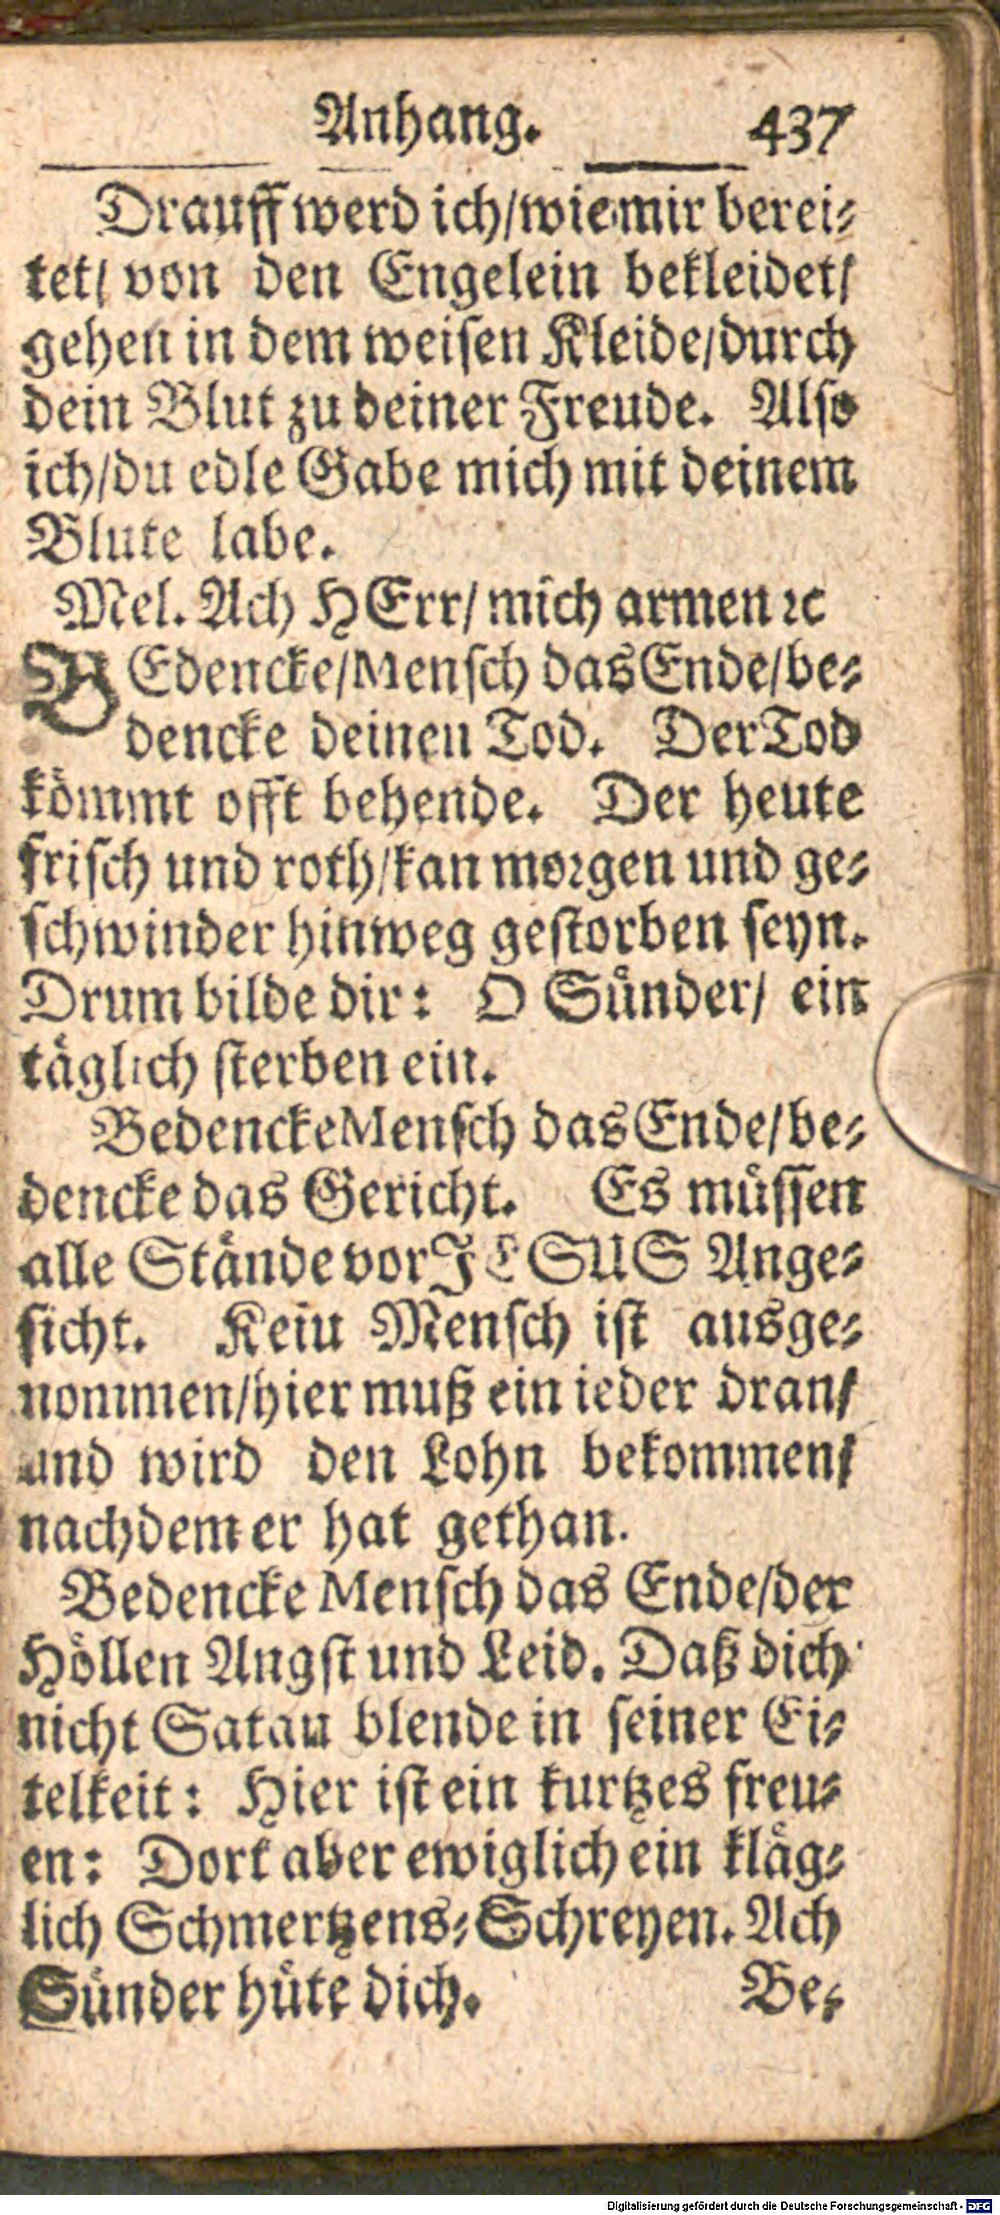 Anhang. 437
Drauff werd ich/wie mir berei⸗
tet/ von den Engelein bekleidet/
gehen in dem weisen Kleide/durch
dein Blut zu deiner Freude. Also
ich/du edle Gabe mich mit deinem
Blute labe.
Mel. Ach HErr/ mich armen ꝛc
BEdencke/Mensch das Ende/be⸗
dencke deinen Tod. Der Tod
kömmt offt behende. Der heute
frisch und roth/kan morgen und ge⸗
schwinder hinweg gestorben seyn.
Drum bilde dir: O Sünder/ ein
täglich sterben ein.
Bedencke Mensch das Ende/be⸗
dencke das Gericht. Es müssen
alle Stände vor JESUS Ange⸗
sicht. Keiu Mensch ist ausge⸗
nommen/hier muß ein ieder dran/
und wird den Lohn bekommen/
nachdem er hat gethan.
Bedencke Mensch das Ende/der
Höllen Angst und Leid. Daß dich
nicht Satau blende in seiner Ei⸗
telkeit: Hier ist ein kurtzes freu⸗
en: Dort aber ewiglich ein kläg⸗
lich Schmertzens⸗Schreyen. Ach
Sünder hüte dich. Be⸗
Digitalisierung gefördert durch die Deutsche Forschungsgemeinschaft - DFG